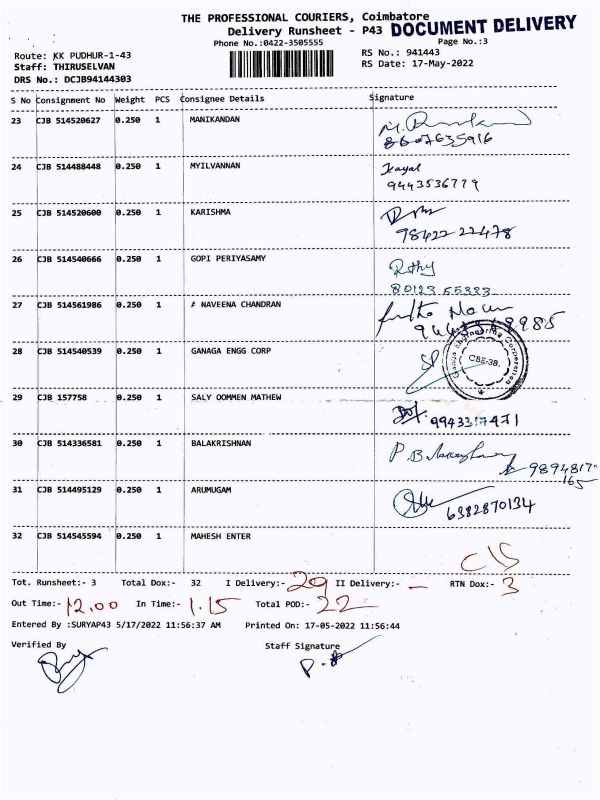 THE PROFESSIONAL COURIERS, Coimbatore
Delivery Runsheet - P43 DOCUMENT DELIVERY
Phone No.:0422-3505555 Page No.:3
Route: KK PUDHUR-1-43 RS No.: 941443
Staff: THIRUSELVAN RS Date: 17-May-2022
DRS No.: DCJB94144303
S No Consignment No Weight PCS Consignee Details Signature
23 CJB 514520627 0.250 1 MANIKANDAN
8607635916
24 CJB 514488448 0.250 1 MYILVANNAN
9443536779
25 CJB 514520600 0.250 1 KARISHMA
98422 22478
26 CJB 514540666 0.250 1 GOPI PERIYASAMY
80123 55333
27 CJB 514561986 0.250 1 A NAVEENA CHANDRAN
28 CJB 514540539 0.250 1 GANAGA ENGG CORP
Ganga Engineering Corporation
CBE-38.
29 CJB 157758 0.250 1 SALY OOMMEN MATHEW
30 CJB 514336581 0.250 1 BALAKRISHNAN
9894817
165
31 CJB 514495129 0.250 1 ARUMUGAM
6382870134
32 CJB 514545594 0.250 1 MAHESH ENTER
C/S
Tot. Runsheet:- 3 Total Dox:- 32 I Delivery:- 29 II Delivery:- — RTN Dox:- 3
Out Time:- 12.00 In Time:- 1.15 Total POD:- 22
Entered By :SURYAP43 5/17/2022 11:56:37 AM Printed On: 17-05-2022 11:56:44
Verified By Staff Signature